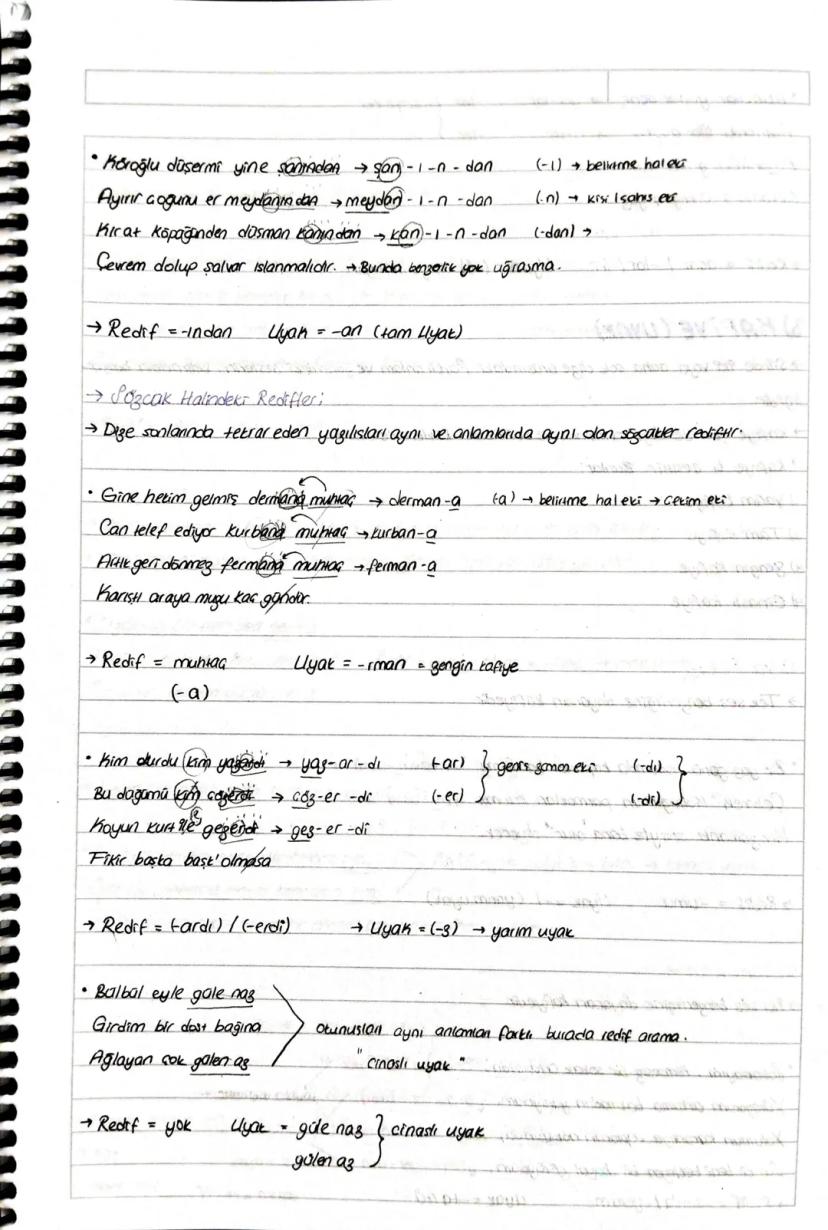 • Köroğlu düşermi yine şanından → şan - ı - n - dan (-ı) → belirtme hal eki
Ayırır çoğunu er meydanından → meydan - ı - n - dan (-n) → kişi / şahıs eki
Kırat köpüğünden düşman kanından → kan - ı - n - dan (-dan) →
Çevrem dolup şalvar ıslanmalıdır. → Bunda benzerlik yok uğraşma.
→ Redif = -ından Uyak = -an (tam Uyak)
→ Sözcük Halindeki Redifler;
→ Dize sonlarında tekrar eden yazılışları aynı ve anlamlarıda aynı olan sözcükler rediftir.
• Gine hekim gelmiş dermana muhtaç → derman-a (-a) → belirtme hal eki → Çekim eki
Can telef ediyor kurbana muhtaç → kurban-a
Artık geri dönmez fermana muhtaç → ferman-a
Karıştı araya kaç gündür.
→ Redif = muhtaç Uyak = -rman = zengin kafiye
(-a)
• Kim okurdu kim yazardı → yaz-ar-dı (-ar) } geniş zaman eki (-dı) }
Bu düğümü kim çözerdi → çöz-er-di (-er) (-di)
Koyun kurt ile gezerdi → gez-er-di
Fikir başka başk'olmasa
→ Redif = (-ardı) / (-erdi) → Uyak = (-z) → yarım uyak
• Bülbül eyle güle naz
Girdim bir dost bağına okunuşları aynı anlamları farklı burada redif arama.
Ağlayan çok gülen az "cinaslı uyak"
→ Redif = yok Uyak = güle naz } cinaslı uyak
gülen az